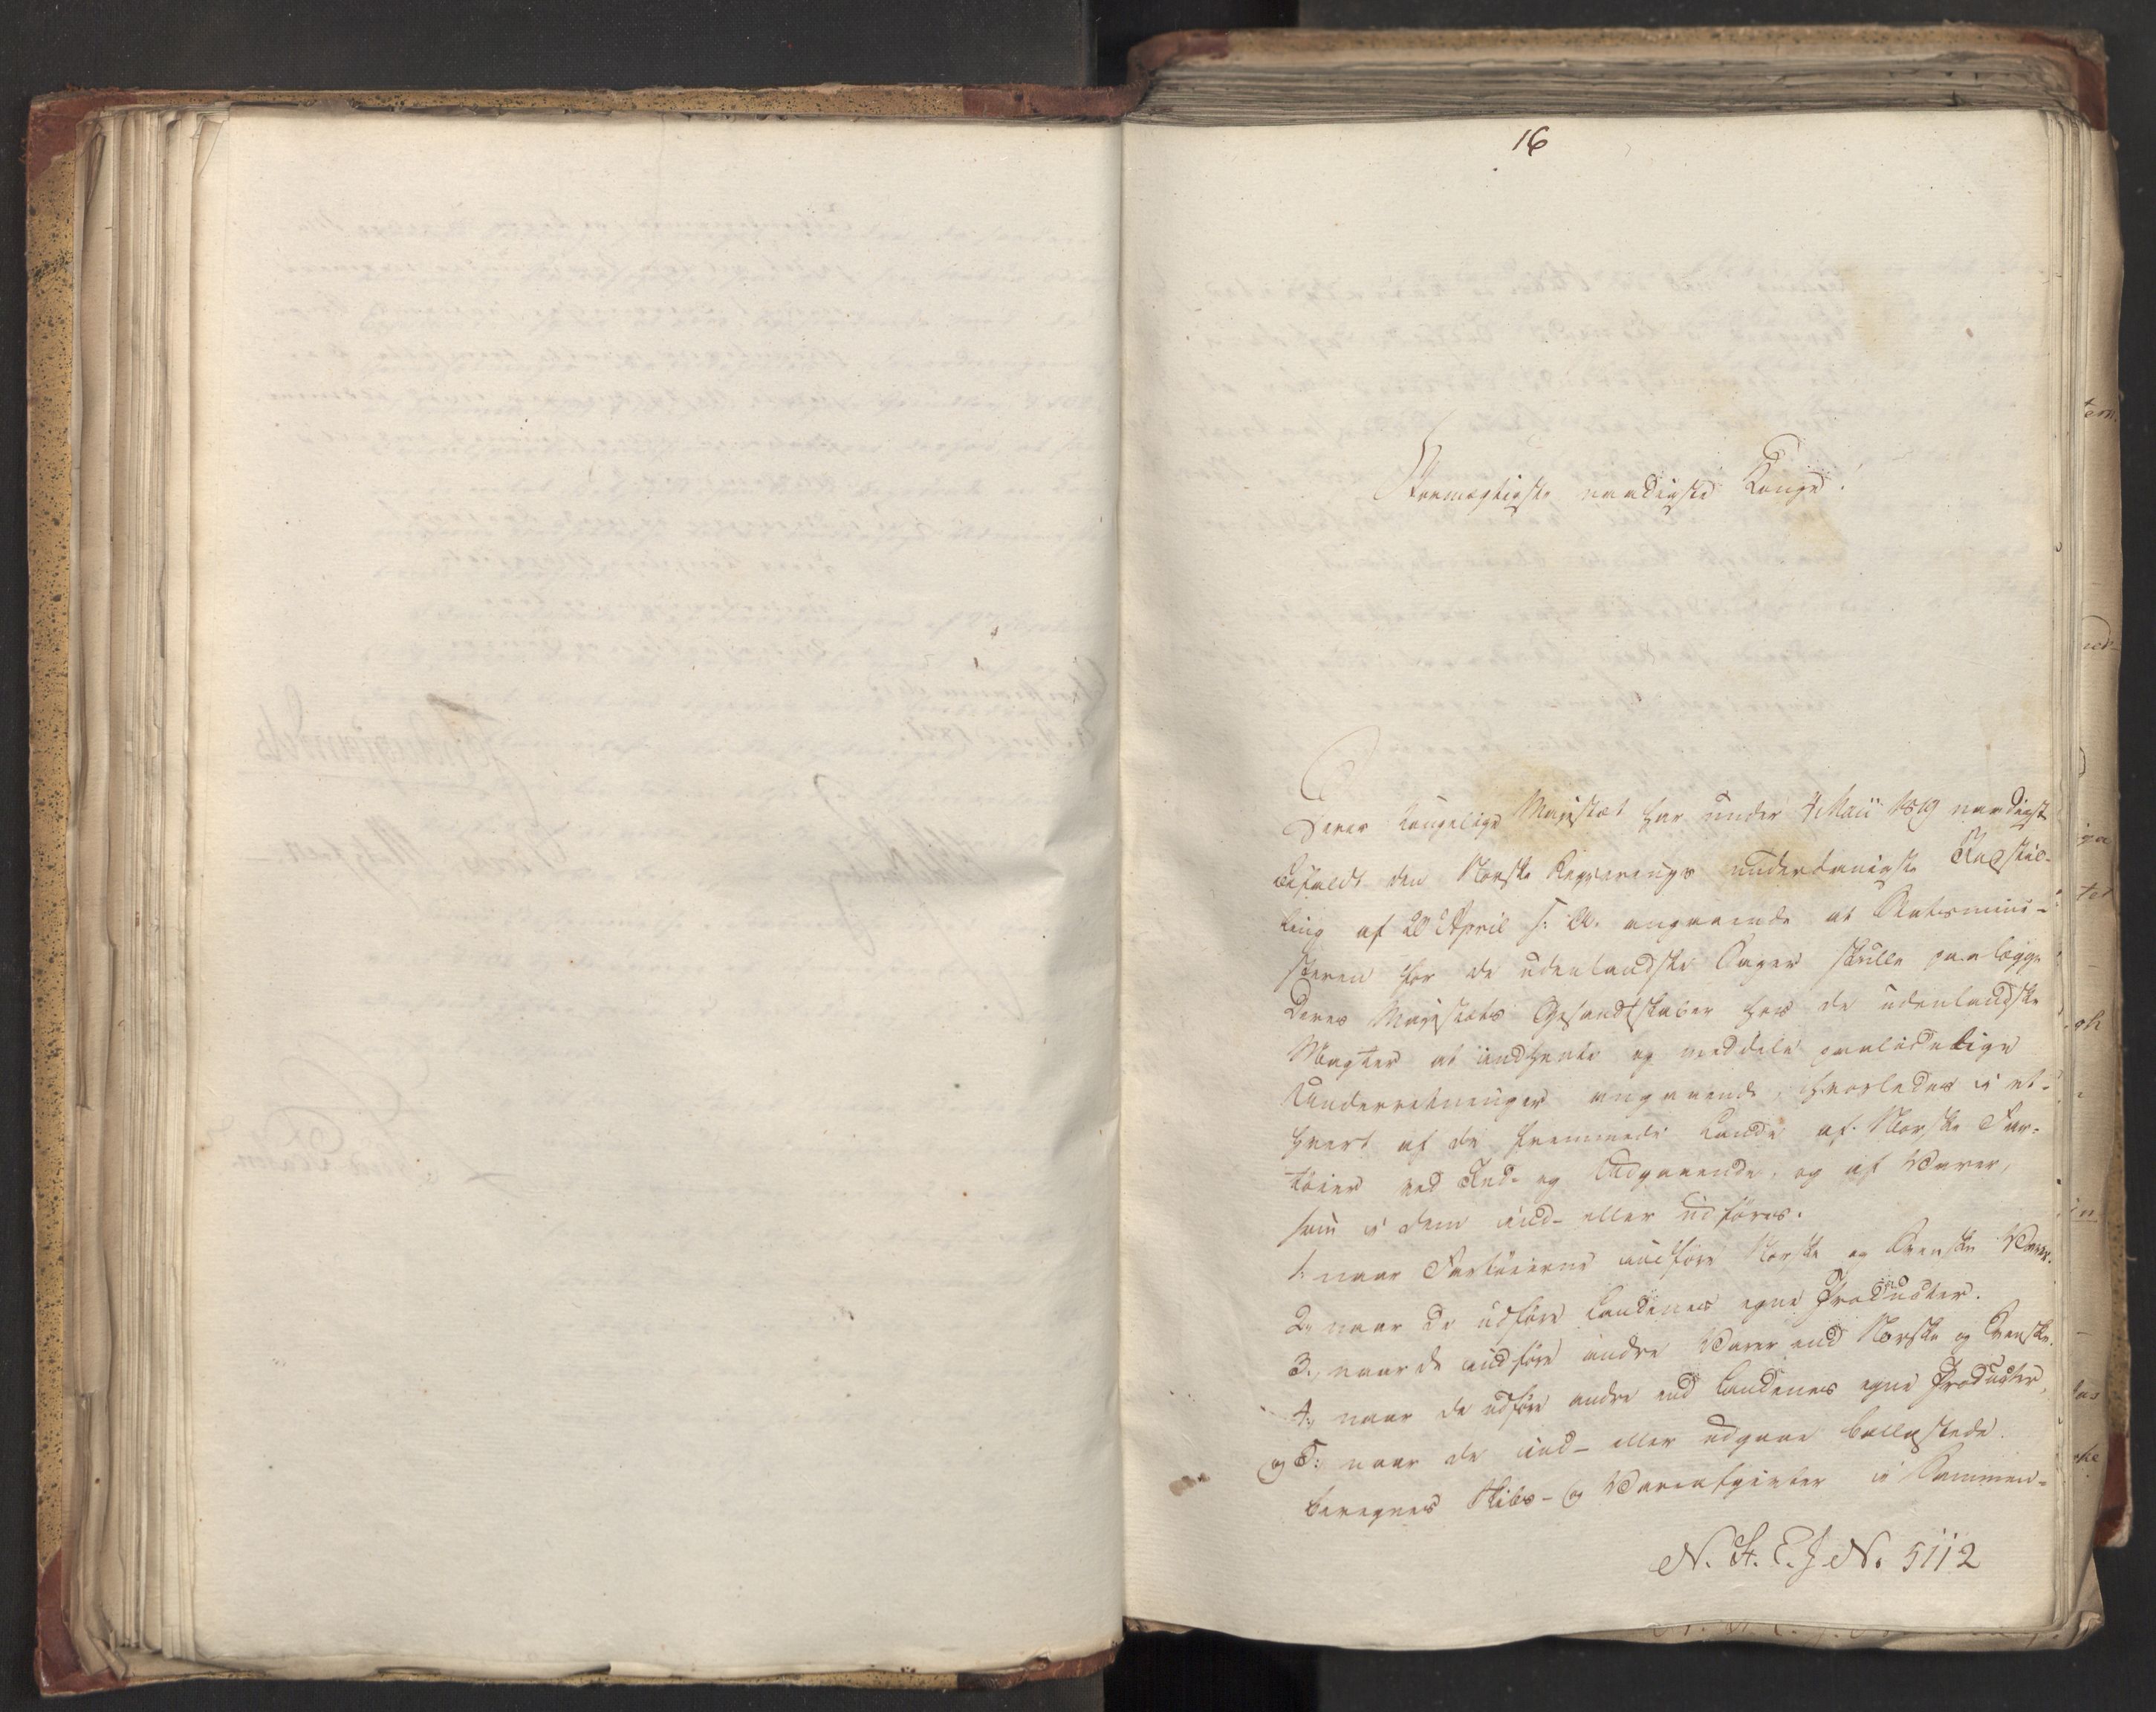 16
Stormægtigste naadigste Konge!
Deres Kongelige Majestæt har under 4 Maii 1819 naadigst
bifaldt den Norske Regjerings underdanigste Indstil-
ling af 20 April s: A. angaaende at Statsmini-
steren for de udenlandske Sager skulle paalægge
Deres Majestæts Gesandtskaber hos de udenlandske
Magter at indhente og meddele paalidelige
Underretninger angaaende, hvorledes i et-
hvert af de fremmede Lande af Norske Far-
tøier ved Ind- og Udgaaende, og af Varer,
som i dem ind- eller udføres.
1. naar Fartøierne indføre Norske og Svenske Varer.
2, naar de udføre Landenes egne Producter.
3., naar de indføre andre Varer end Norske og Svenske.
4, naar de udføre andre end Landenes egne Producter,
og 5: naar de ind- eller udgaae ballastede.
beregnes Skibs- og Vareafgivter i Sammen-
N. H. E. J. No. 5112